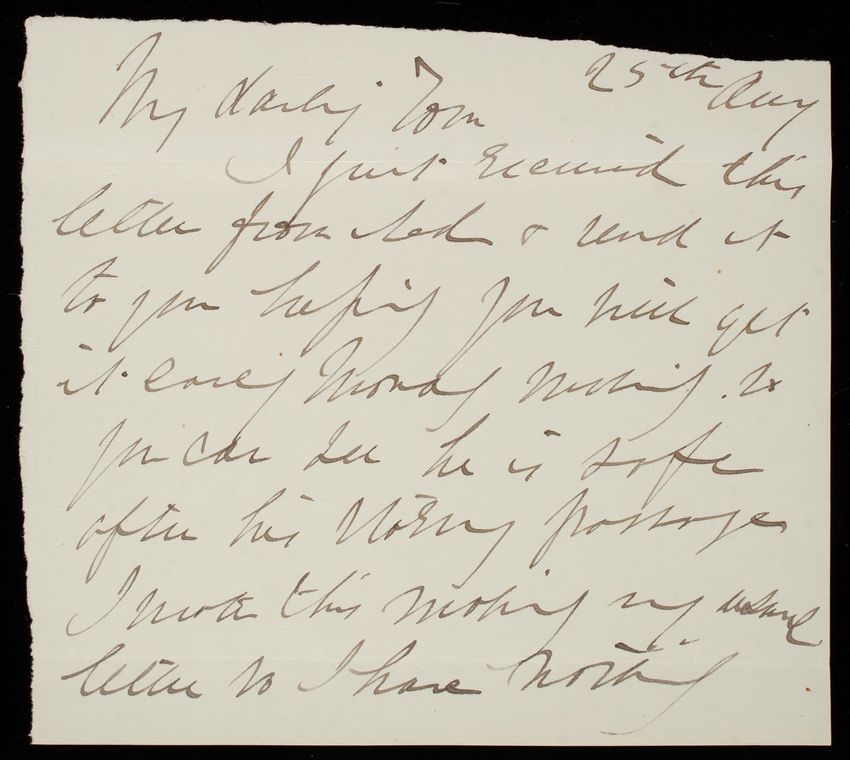 25th Aug
My darling Tom
I just received this
letter from Ned & send it
to you hoping you will get
it early Monday morning. So
you can see he is safe
after his stormy passage
I wrote this morning my usual
letter so I have nothing